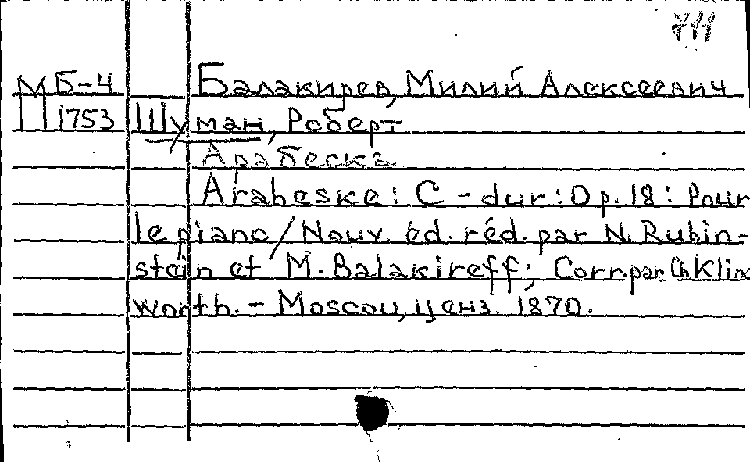 711
МБ-4 Балакирев, Милий Алексеевич
П 1753 Шуман, Роберт
Арабеска
Arabeske: C - dur: Op. 18: Pour
le piano / Nouv. éd. réd. par N. Rubin-
stein et M. Balakireff; Corr. par Ch. Klin
worth. - Moscou, ценз. 1870.